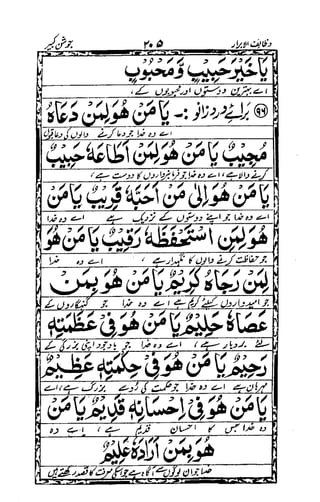 وظائف الابرار ۲۰۵ جوشن کبیر
يَا خَيْرَ حَبِيْبٍ وَّمَحْبُوْبٍ
اے بہترین دوستوں اور محبوبوں کے
(۹۶) برائے درد زانو :- يَا مَنْ هُوَ لِمَنْ دَعَاهُ
اے وہ خدا جو دعا کرنے والوں کی دعا قبول
مُجِيْبٌ يَا مَنْ هُوَ لِمَنْ اَطَاعَهٗ حَبِيْبٌ
کرنے والا ہے اے وہ خدا جو فرمانبرداروں کا دوست ہے
يَا مَنْ هُوَ اِلٰى مَنْ اَحَبَّهٗ قَرِيْبٌ يَا مَنْ
اے وہ خدا جو اپنے دوستوں کے نزدیک ہے اے وہ خدا
هُوَ لِمَنْ اسْتَحْفَظَهٗ رَقِيْبٌ يَا مَنْ هُوَ
جو حفاظت کرنے والوں کا نگہدار ہے اے وہ خدا
لِمَنْ رَجَاهُ كَرِيْمٌ يَا مَنْ هُوَ بِمَنْ
جو امیدواروں کیلئے کریم ہے اے وہ خدا جو گنہگاروں کے
عَصَاهُ حَلِيْمٌ يَا مَنْ هُوَ فِيْ عَظَمَتِهٖ
لئے بردبار ہے اے وہ خدا جو باوجود اپنی بزرگی کے
رَحِيْمٌ يَا مَنْ هُوَ فِيْ حِكْمَتِهٖ عَظِيْمٌ
مہربان ہے اے وہ خدا جو حکمت کی رو سے بزرگ ہے اے
يَا مَنْ هُوَ فِيْ اِحْسَانِهٖ قَدِيْمٌ يَا مَنْ
وہ خدا جس کا احسان قدیم ہے اے وہ
هُوَ بِمَنْ اَرَادَهٗ عَلِيْمٌ
خدا جو ان لوگوں سے آگاہ ہے جو اسکی معرفت کا قصد رکھتے ہیں